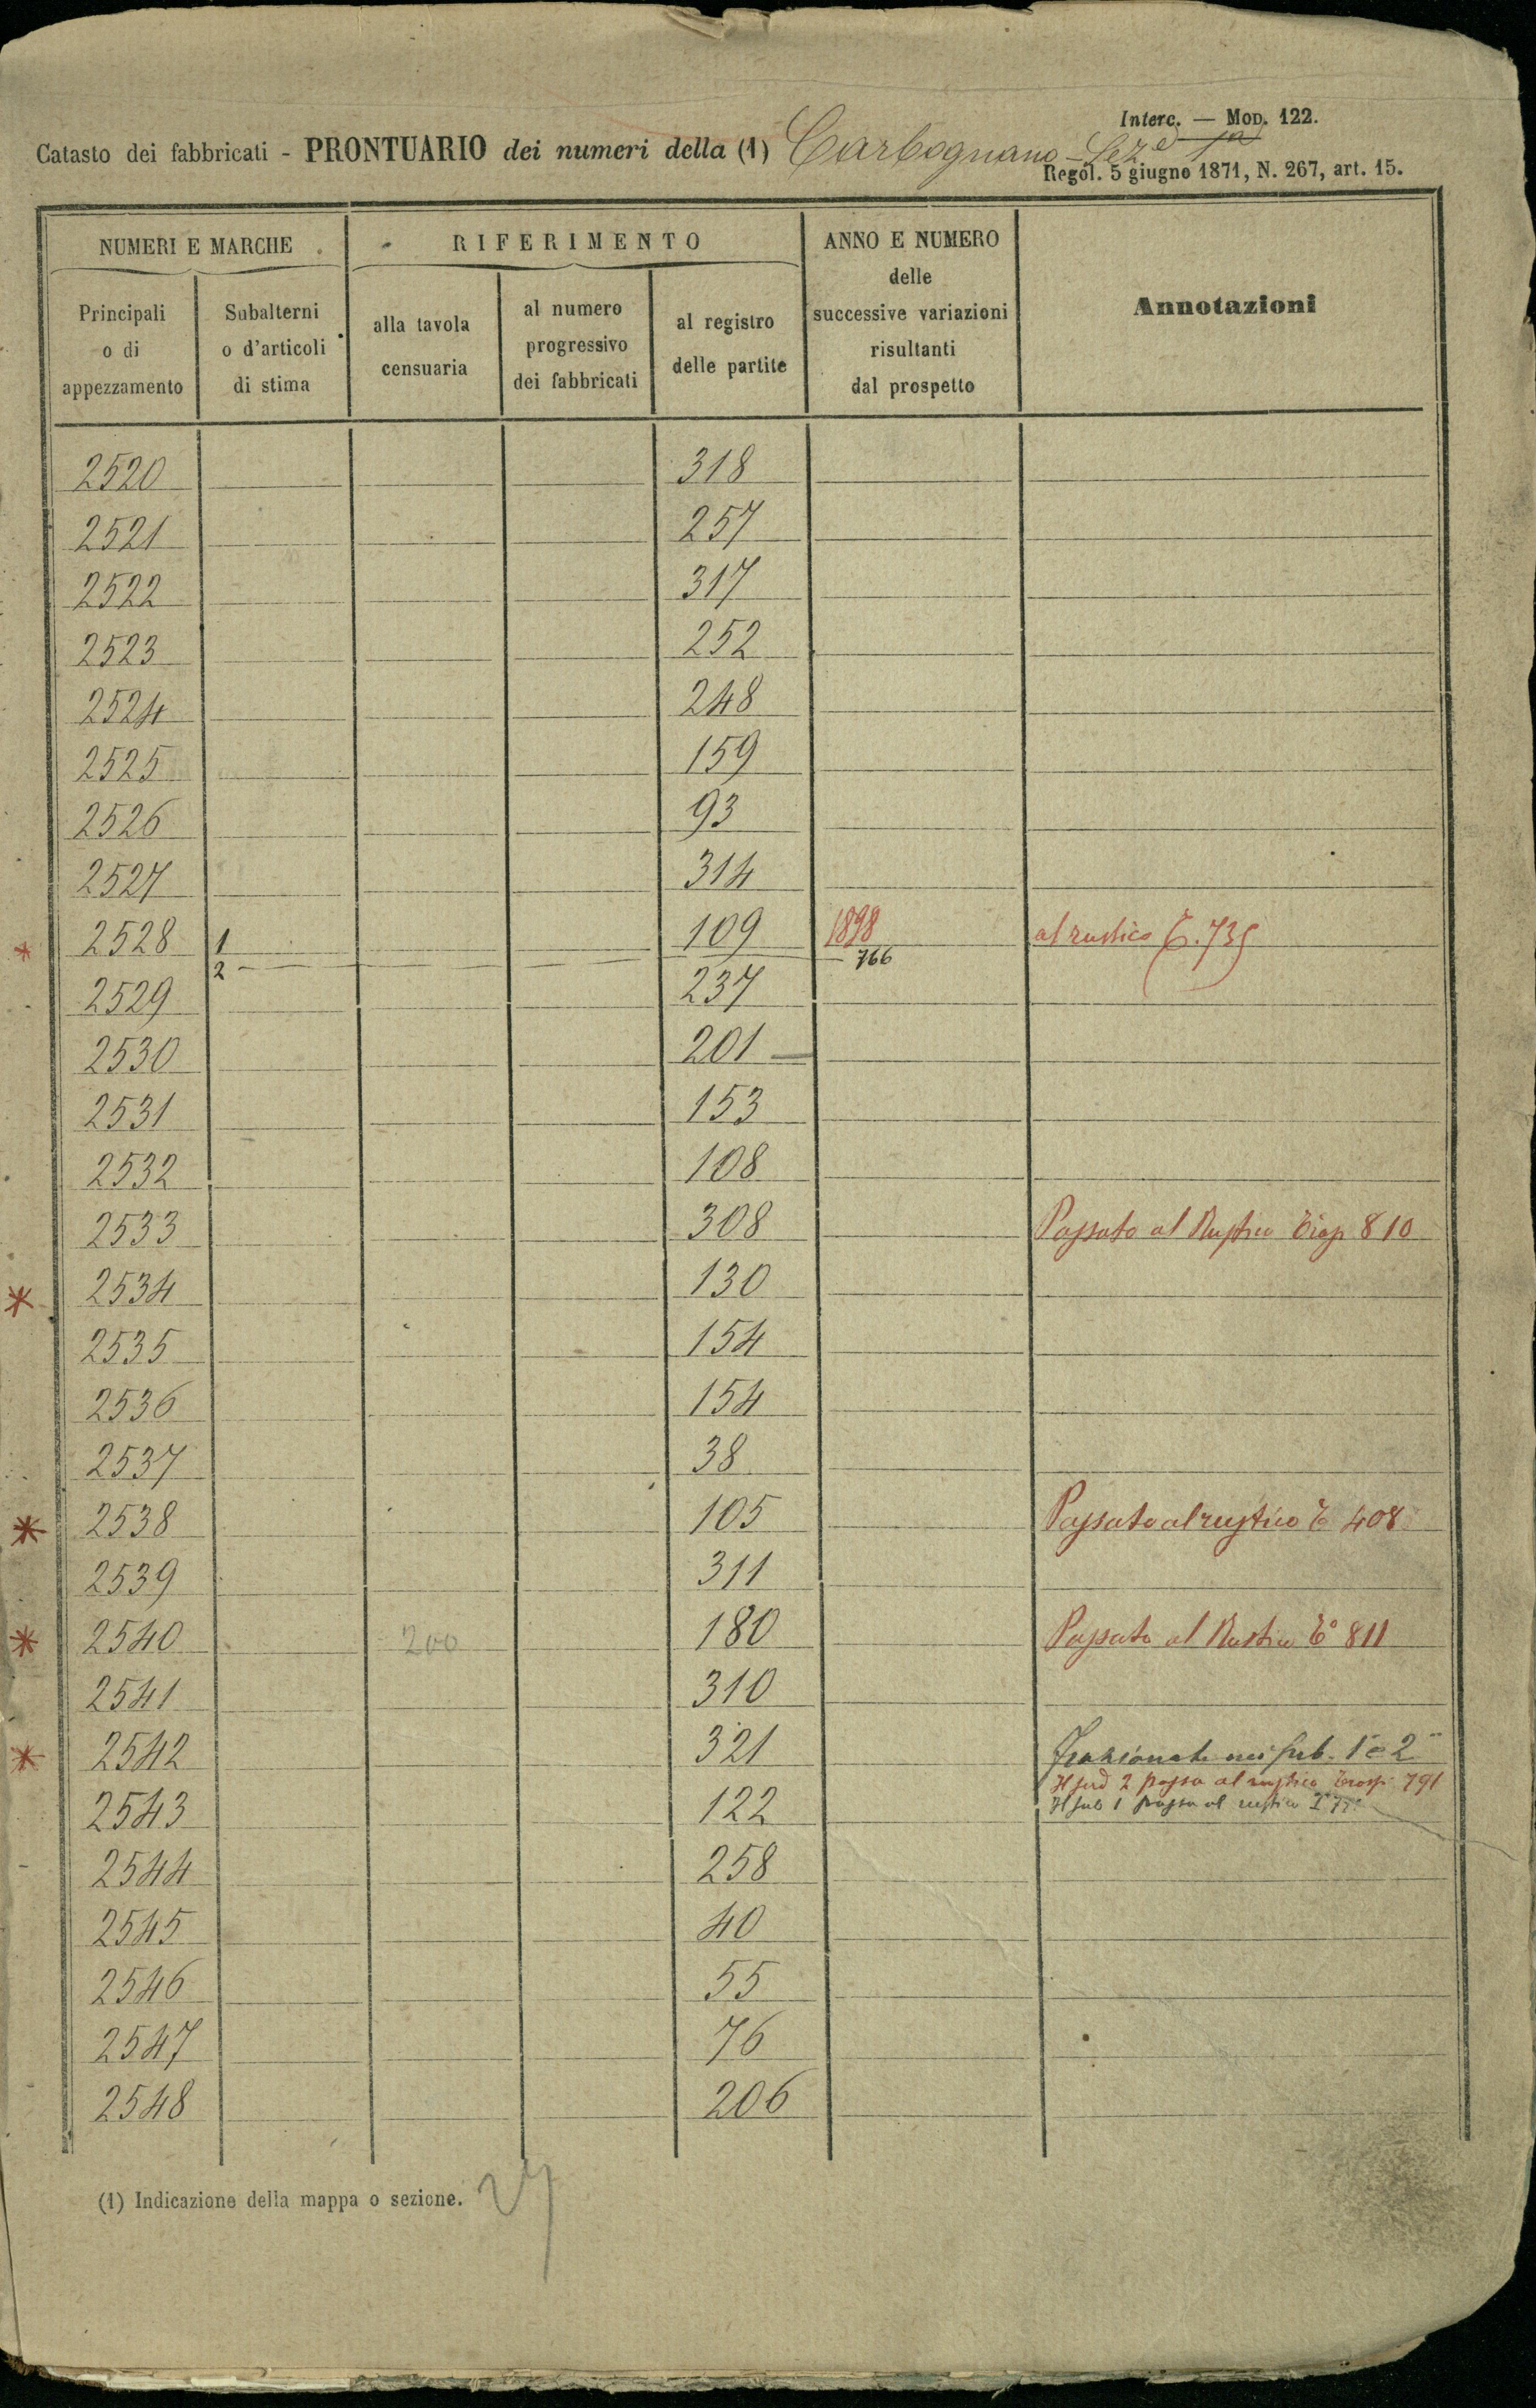 Interc. — Mod. 122.
Catasto dei fabbricati - PRONTUARIO dei numeri della (1) Carbognano - Sez.e 1a
Regol. 5 giugno 1871, N. 267, art. 15.
NUMERI E MARCHE RIFERIMENTO ANNO E NUMERO delle successive variazioni risultanti dal prospetto Annotazioni
Principali o di appezzamento Subalterni o d'articoli di stima alla tavola censuaria al numero progressivo dei fabbricati al registro delle partite
2520 318
2521 257
2522 317
2523 252
2524 248
2525 159
2526 93
2527 314
* 2528 1 109 1898 al rustico T. 735
2 766
2529 237
2530 201
2531 153
2532 108
2533 308 Passato al Rustico 810
* 2534 130
2535 154
2536 154
2537 38
* 2538 105 Passato al rustico T 408
2539 311
* 2540 200 180 Passato al Rustico T° 811
2541 310
* 2542 321 Frazionato nei sub. 1 e 2
Il sub 2 passa al rustico 791
Il sub 1 passa al rustico
2543 122
2544 258
2545 40
2546 55
2547 76
2548 206
(1) Indicazione della mappa o sezione. 27